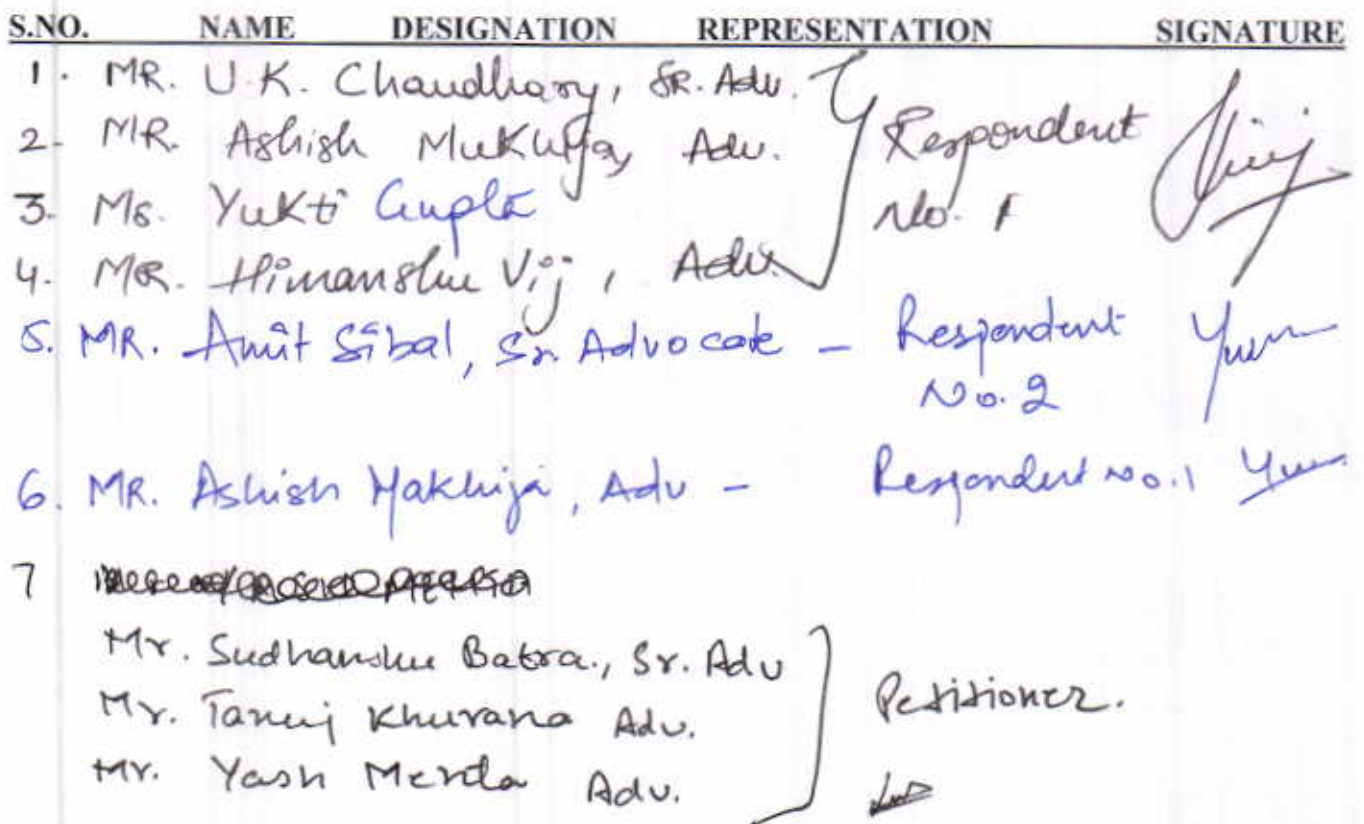 S.NO. NAME DESIGNATION REPRESENTATION SIGNATURE
1. MR. U.K. Chaudhary, SR. Adv.
2- MR. Ashish Mukhija, Adv. Respondent
3- Ms. Yukti Gupta No. 1
4. MR. Himanshu Vij, Adv.
5. MR. Amit Sibal, Sr. Advocate - Respondent
No. 2
6. MR. Ashish Makhija, Adv - Respondent No. 1
7
Mr. Sudhanshu Batra., Sr. Adv
Mr. Tanuj Khurana Adv. Petitioner.
Mr. Yash Adv.